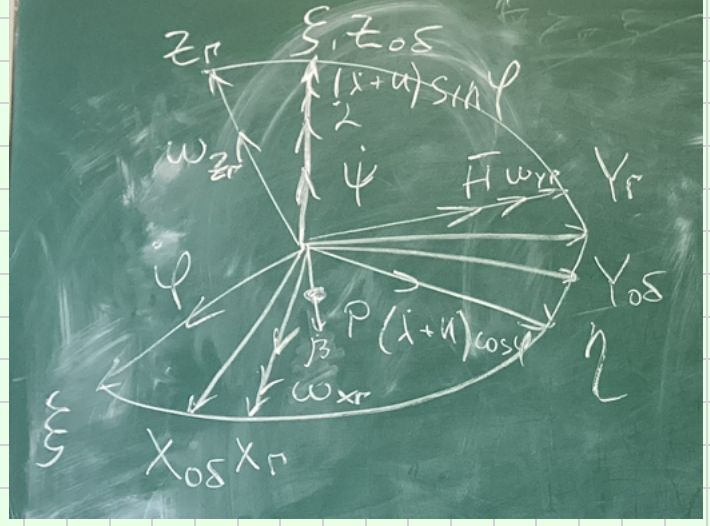 Zг
ξ, Zоб
(λ̇+u) sin φ
α̇
ωZг
ψ̇
H̄
ωYг
Yг
φ̇
Yоб
P
(λ̇+u) cos φ
β̇
η
ωXг
ξ
Xоб
Xг